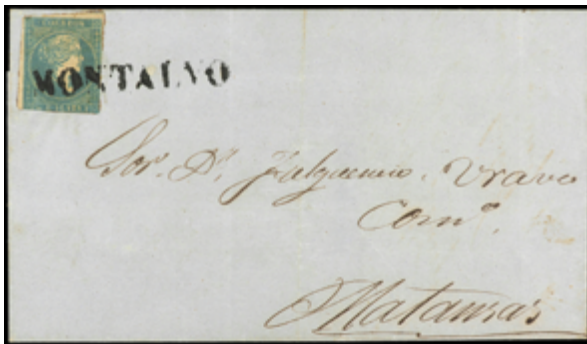 CORREOS
MONTALVO
Sor. Dn. Fulgencio Vravo
Como.
Matanzas